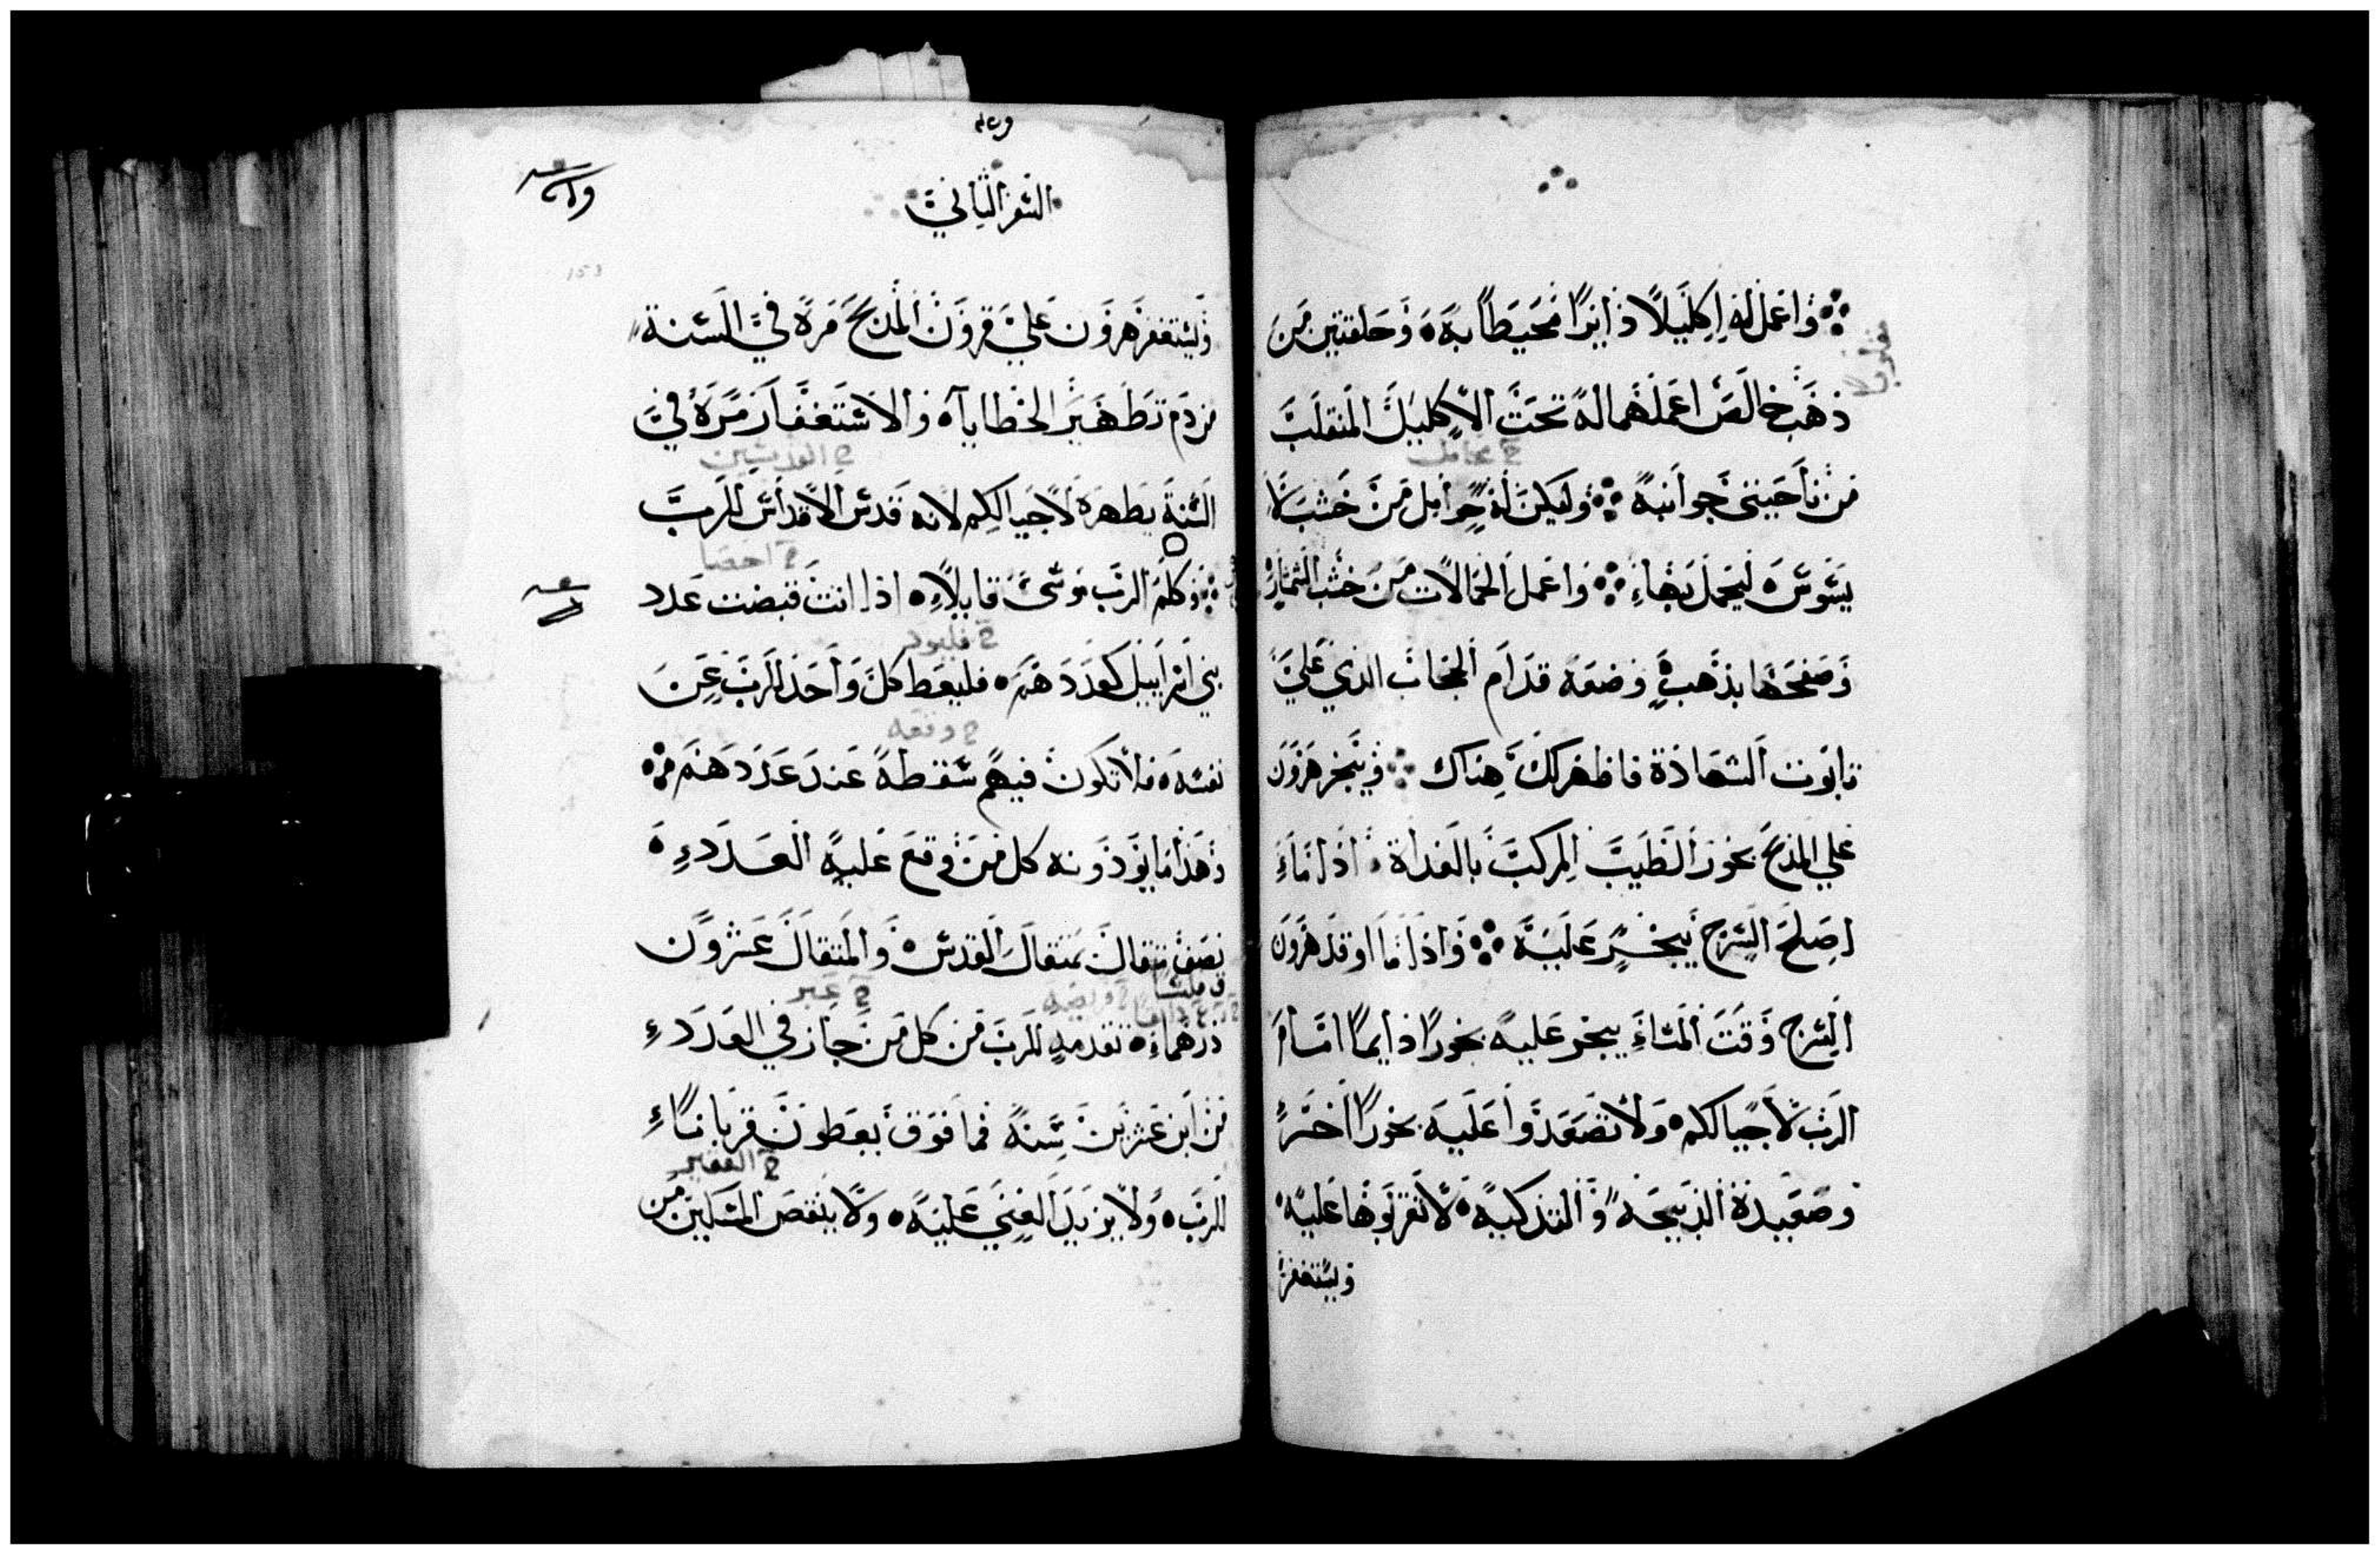 واعمل له اكليلا دايرا محيطا به وحلقتين من
ذهب خالص اعملهما له تحت الاكليل المنقلب
من ناحيتى جوانبه وليكن له حوامل من خشب لا
يسوس ليحمل بهاء واعمل الحمالات من خشب
وصفحها بذهب وضعه قدام الحجاب الذي علي
تابوت الشهادة فاظهر لك هناك ويبخر هرون
علي المذبح بخور الطيب المركب بالغداة اذا ماء
اصلح السرج يبخر عليه واذا ما اوقد هرون
السرج وقت المساء يبخر عليه بخورا دايما امام
الرب لاجيالكم ولا تصعدوا عليه بخورا اخر
وصعيدة الذبيحه والتذكيه لا تقربوها عليه
ويستغفر
السفر الثاني
153
وليستغفر هرون علي قرون المذبح مره في السنة
من دم تطهير الخطايا والاستغفار مره في
السنة يطهره لاجيالكم لانه قدس الاقداس للرب
ح احصا
وكلم الرب موسى قايلاء اذا انت قبضت عدد
بني اسراييل كعددهم فليعط كل واحد للرب عن
نفسه فلا تكون فيهم سقطه عند عددهم
وهذا ما يودونه كل من وقع عليه العدد
نصف مثقال بمثقال القدس والمثقال عشرون
ح عبر
درهماء تقدمه للرب من كل من جاز في العدد
من ابن عشرين سنة فما فوق يعطون قرباناء
ح الفقير
للرب ولا يزيد الغني عليه ولا ينقص المسكين من